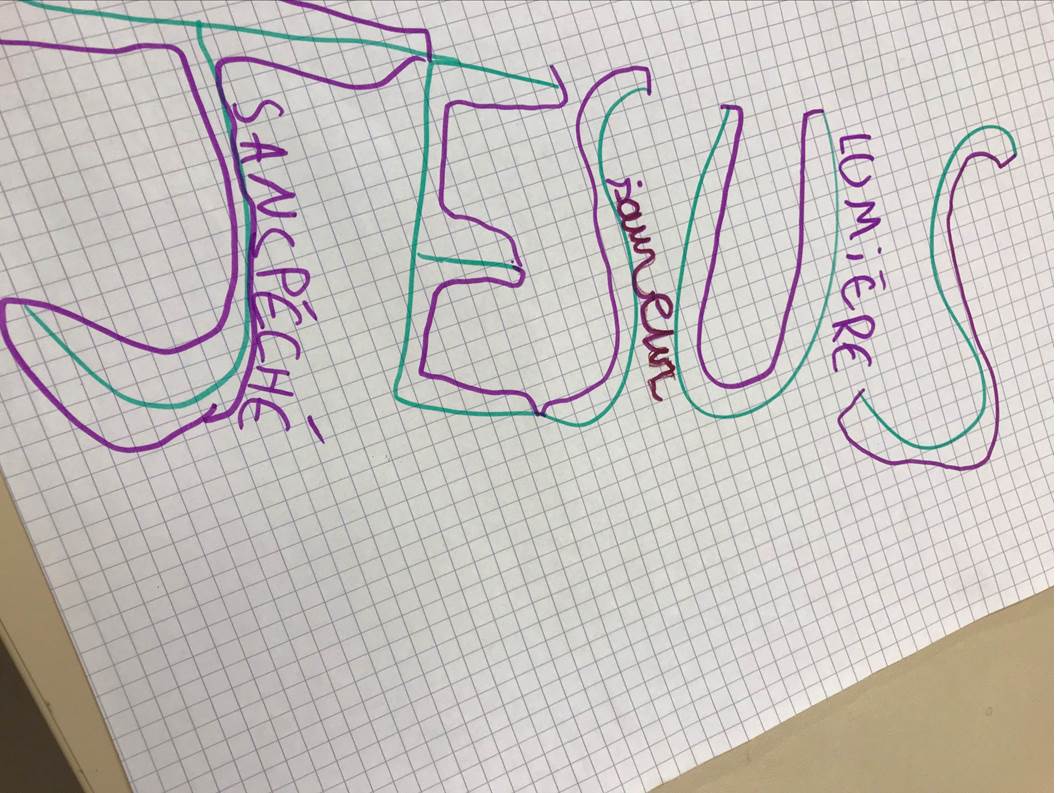 JESUS
SANC PÉCHÉ
sauveur
LUMiÈRE